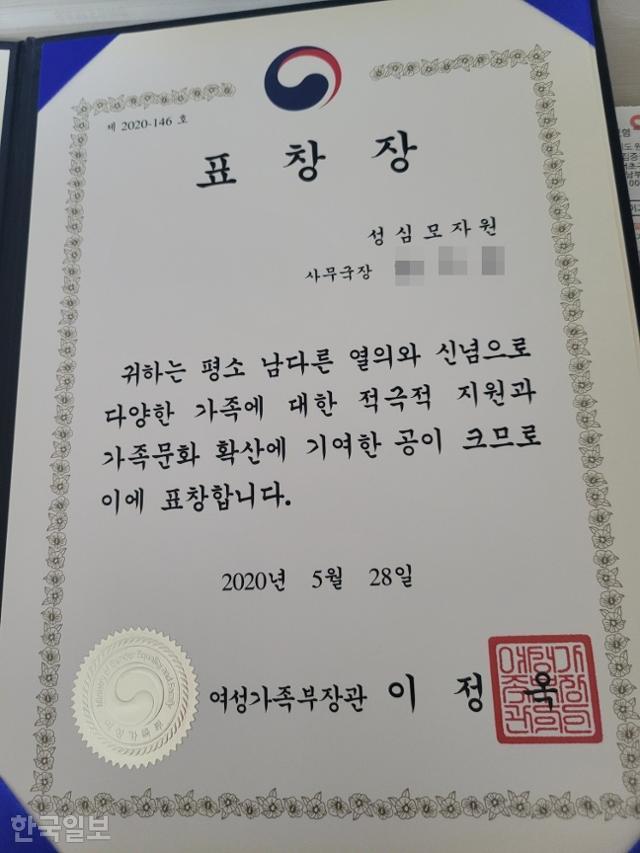 제 2020-146 호
표 창 장
성심모자원
사무국장
귀하는 평소 남다른 열의와 신념으로
다양한 가족에 대한 적극적 지원과
가족문화 확산에 기여한 공이 크므로
이에 표창합니다.
2020년 5월 28일
여성가족부장관 이 정 옥
한국일보